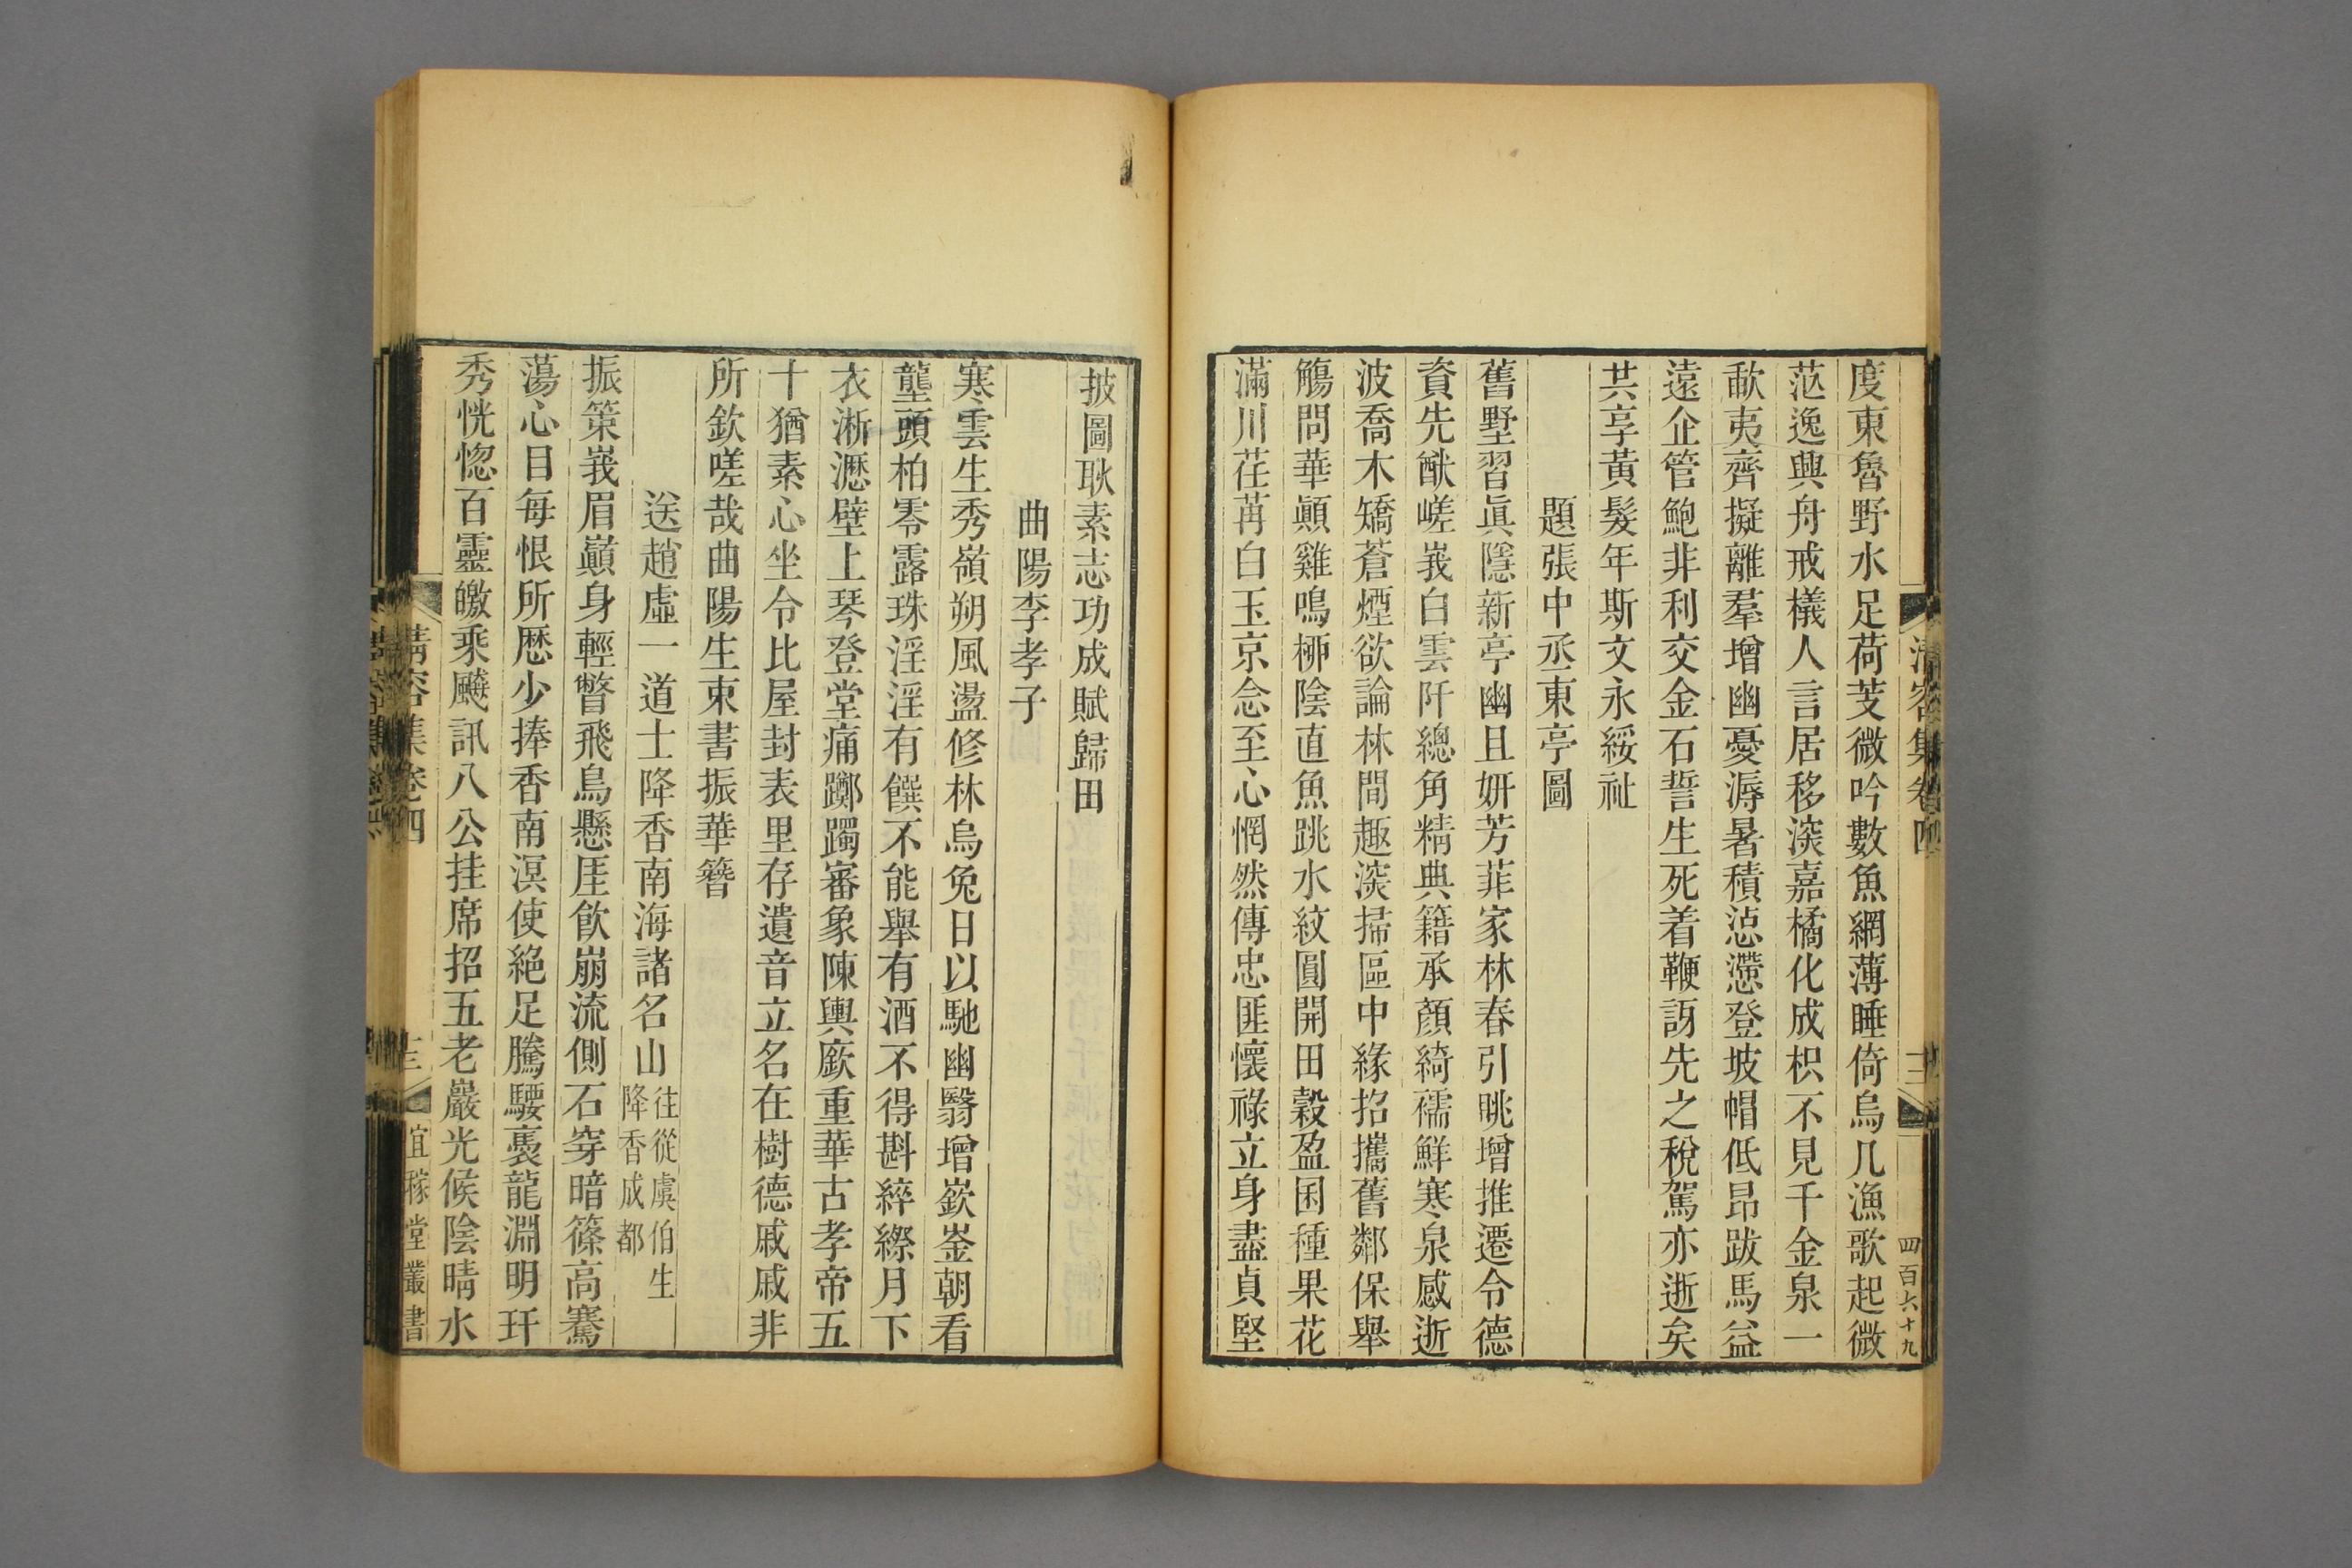 度東魯野水足荷芰微吟數魚網薄睡倚烏几漁歌起微
茫逸興舟戒檥人言居移深嘉橘化成枳不見千金泉一
歃夷齊擬離羣增幽憂溽暑積惉懘登坡帽低昂跋馬益
遠企管鮑非利交金石誓生死着鞭訪先之稅駕亦逝矣
共享黃髮年斯文永綏祉
題張中丞東亭圖
舊墅習眞隱新亭幽且妍芳菲家林春引眺增推遷令德
資先猷嵯峩白雲阡總角精典籍承顏綺襦鮮寒泉感逝
波喬木矯蒼煙欲論林間趣深掃區中緣招攜舊鄰保舉
觴問華顚雞鳴桺陰直魚跳水紋圓開田穀盈囷種果花
滿川荏苒白玉京念至心惘然傳忠匪懷祿立身盡貞堅
清容集卷四
四百六十九
披圖耿素志功成賦歸田
曲陽李孝子
寒雲生秀嶺朔風盪修林烏兔日以馳幽翳增嶔崟朝看
壠頭柏零露珠淫淫有饌不能舉有酒不得斟綷縩月下
衣淅瀝壁上琴登堂痛躑躅審象陳輿廞重華古孝帝五
十猶素心坐令比屋封表里存遺音立名在樹德戚戚非
所欽嗟哉曲陽生束書振華簪
送趙虛一道士降香南海諸名山往從虞伯生
降香成都
振策峩眉巔身輕瞥飛鳥懸厓飮崩流側石穿暗篠高騫
蕩心目每恨所歷少捧香南溟使絕足騰騕褭龍淵明玕
秀恍惚百靈皦乘飈訊八公挂席招五老巖光候陰晴水
清容集卷四
宜稼堂叢書